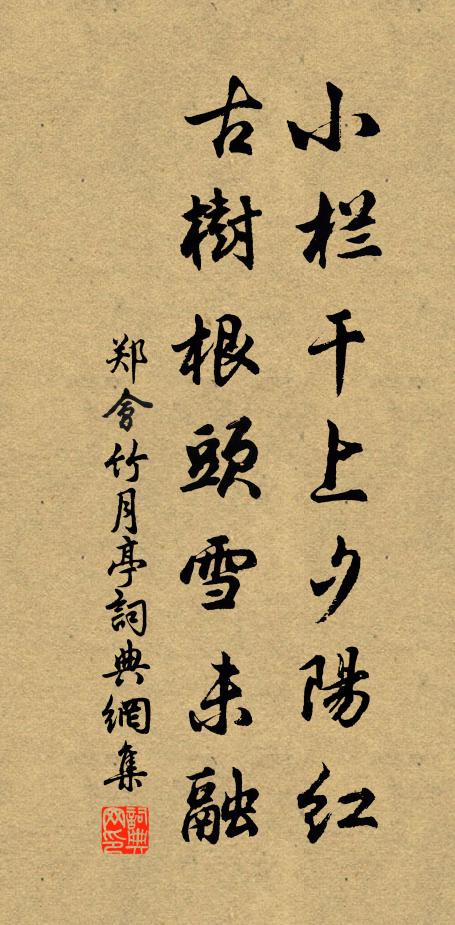 小栏干上夕陽红
古樹根頭雪未融
郑會竹月亭詞典網集
詞典网印